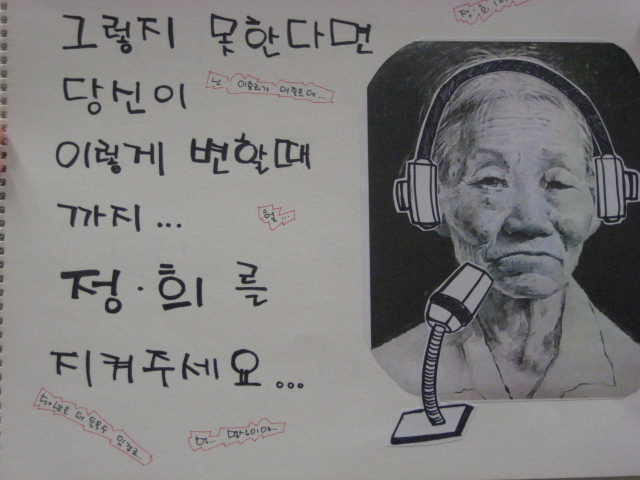 그렇지 못한다면
당신이
난 이소리가 더좋은데...
이렇게 변할때
까지...
헐...
정·희를
지켜주세요...